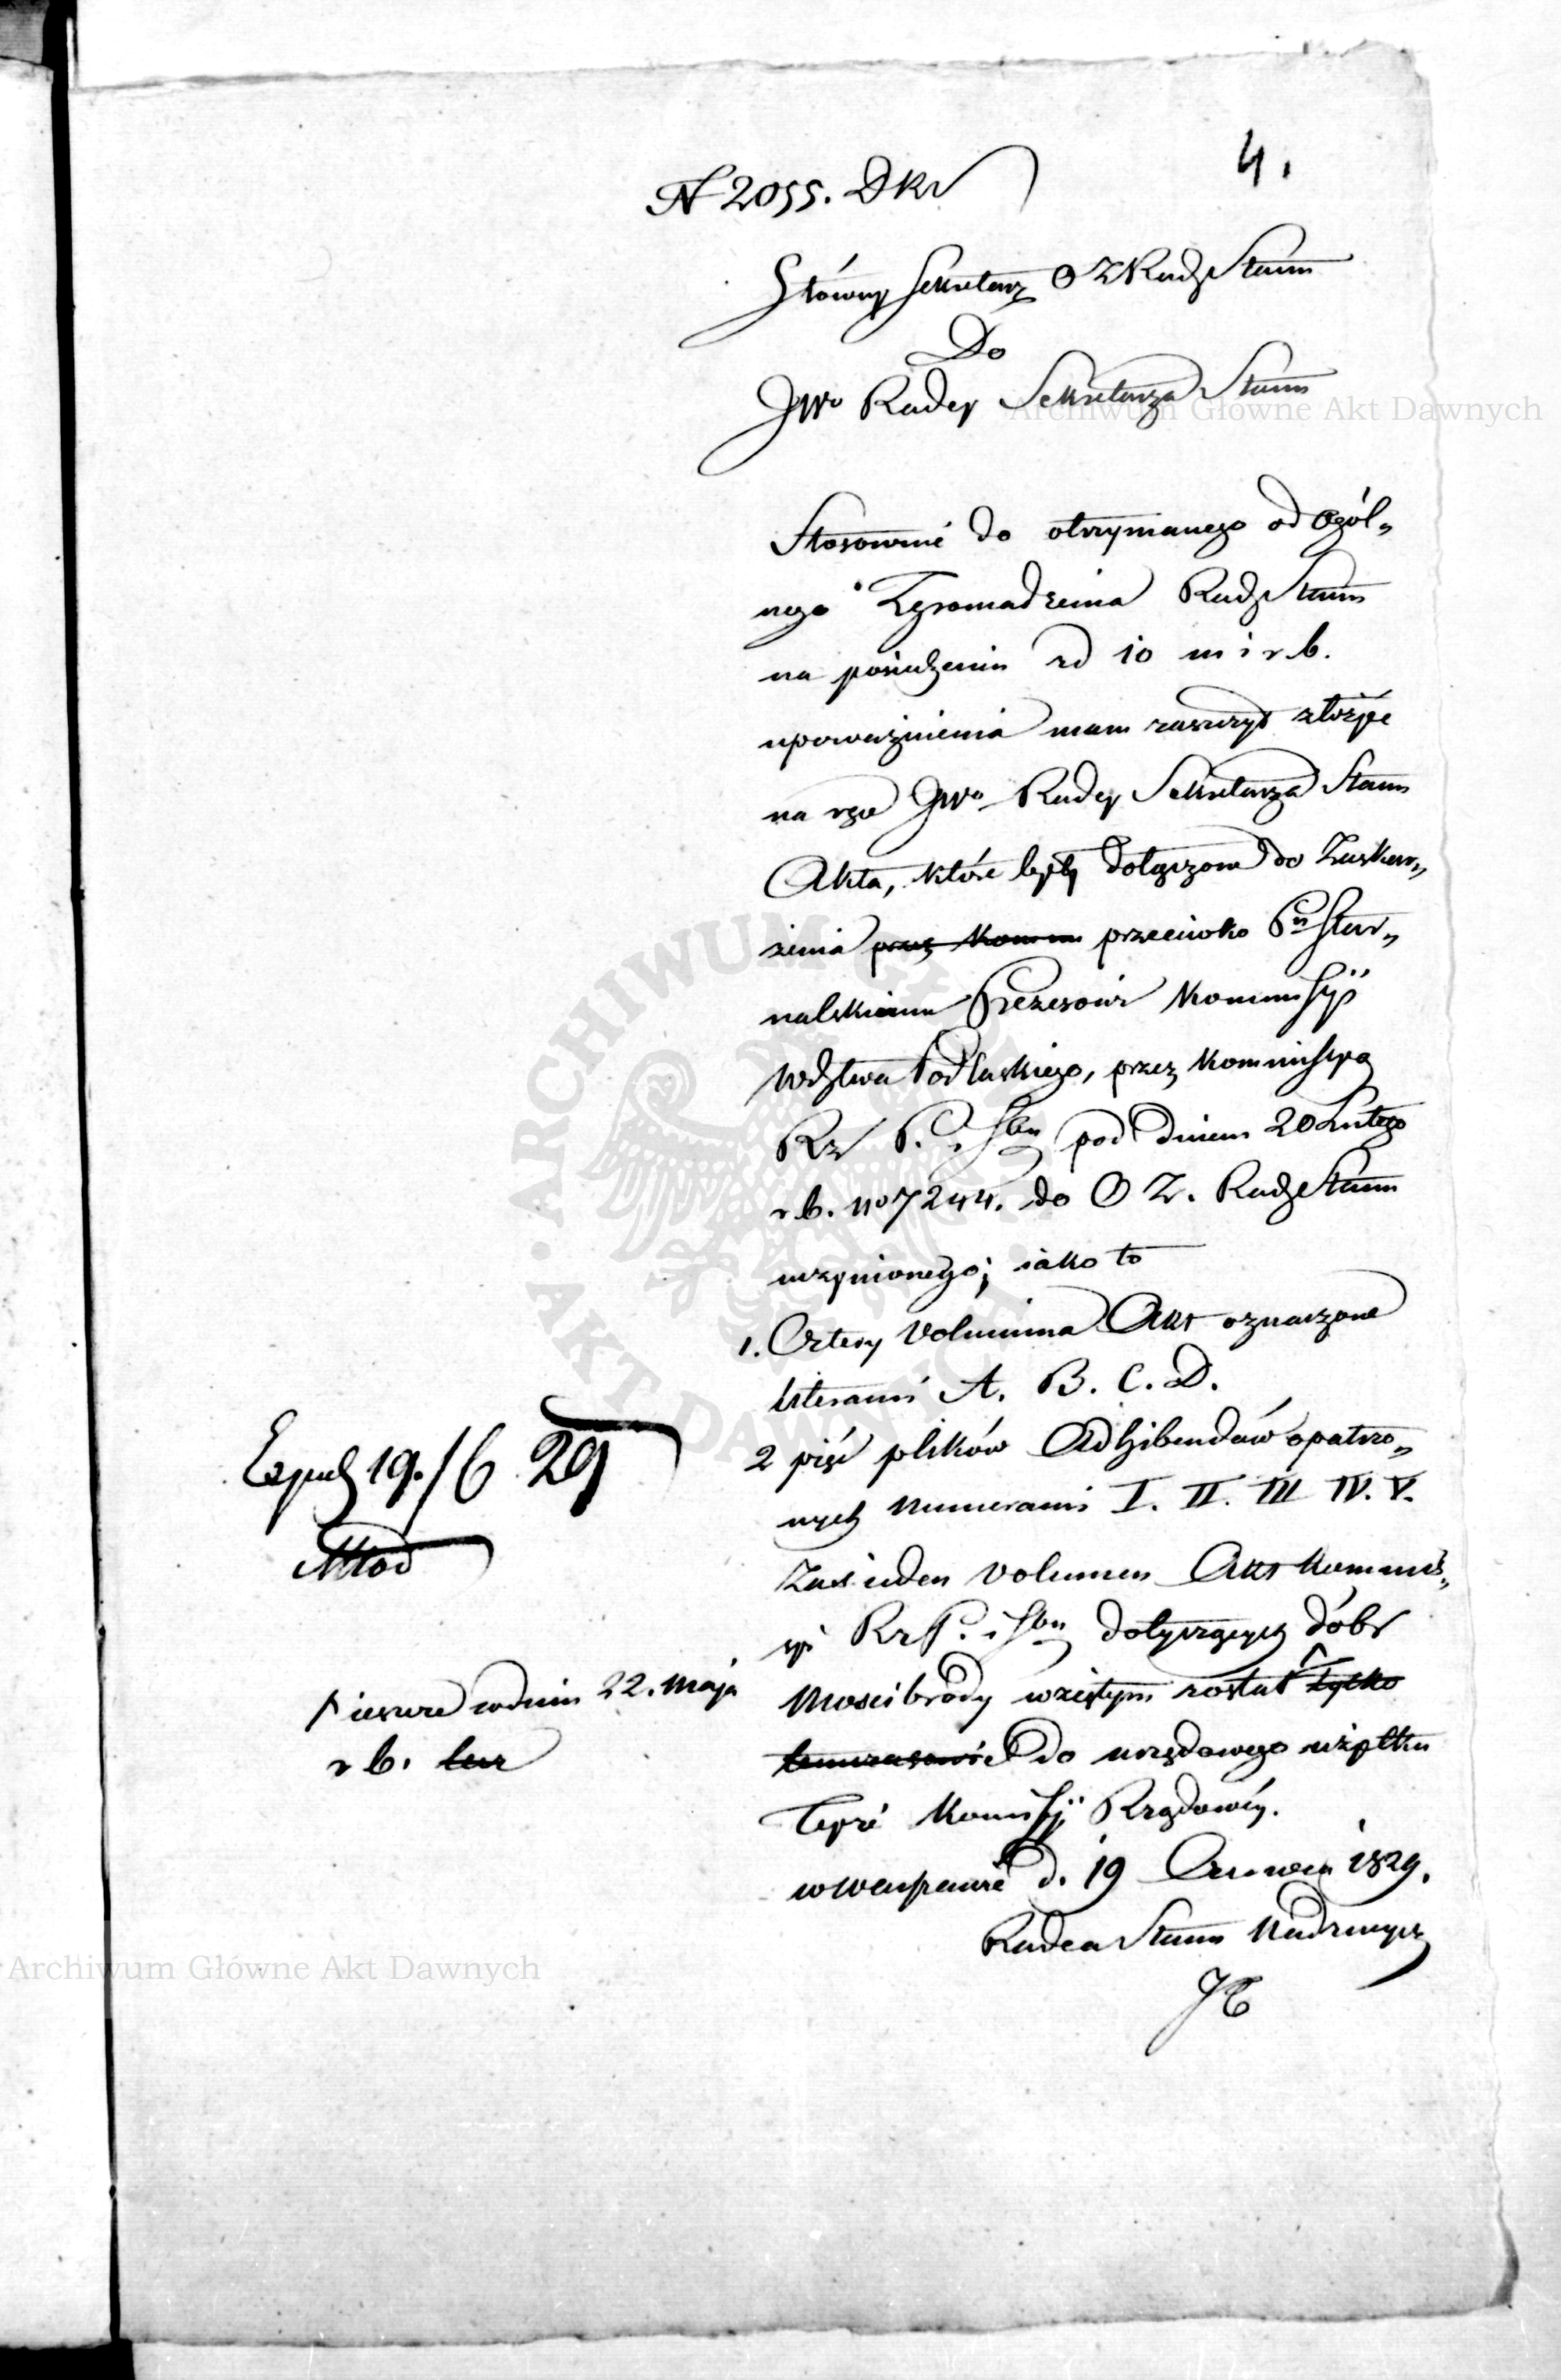 4.
N 2055. DKr
Główny Sekretarz O Z Rady Stanu
Do
JWo Radcy Sekretarza Stanu
Stosownie do otrzymanego od Ogól„
nego Zgromadzenia Rady Stanu
na posiedzeniu zd 10 m i r b.
upoważnienia mam zaszczyt złożyć
na ręce JWo Radcy Sekretarza Stanu
Akta, które były dołączone do Zaskar„
żenia przez Komm przeciwko Pu Ster„
nalskiemu Prezesowi Kommissyi
Wdztwa Podlaskiego, przez Kommissyą
Rz P. i Sku pod dniem 20 Lutego
r b. No 7244. do O Z. Rady Stanu
uczynionego; iako to
1. Cztery Volumina Akt oznaczone
literami A. B. C. D.
2 pięć plików Adhibendów opatrzo„
nych Numerami I. II. III IV. V.
Expед 19./6 29
Młod
Zaś ieden Volumen Akt Kommis„
syi Rz P. i Sku dotyczących dóbr
Mościbrody wziętym został tylko
Λ ieszcze w dniu 22. Maja
r b.
tymczasowie do urzędowego użytku
teyże Kommissyi Rządowéy.
w Warszawie d. 19 Czerwca 1829.
Radca Stanu Nadzwyczy
Archiwum Główne Akt Dawnych
ARCHIWUM GŁÓWNE AKT DAWNYCH
Archiwum Główne Akt Dawnych